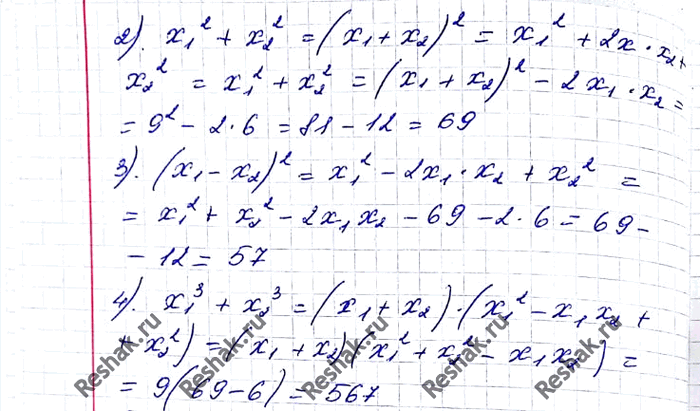 2). x₁² + x₂² = (x₁ + x₂)² = x₁² + 2x · x₂ +
x₂² = x₁² + x₂² = (x₁ + x₂)² - 2x₁ · x₂ =
= 9² - 2 · 6 = 81 - 12 = 69
3). (x₁ - x₂)² = x₁² - 2x₁ · x₂ + x₂² =
= x₁² + x₂² - 2x₁x₂ - 69 - 2 · 6 = 69 -
- 12 = 57
4). x₁³ + x₂³ = (x₁ + x₂) · (x₁² - x₁x₂ +
+ x₂²) = (x₁ + x₂)(x₁² + x₂² - x₁x₂) =
= 9(69 - 6) = 567
Reshak.ru Reshak.ru Reshak.ru Reshak.ru Reshak.ru